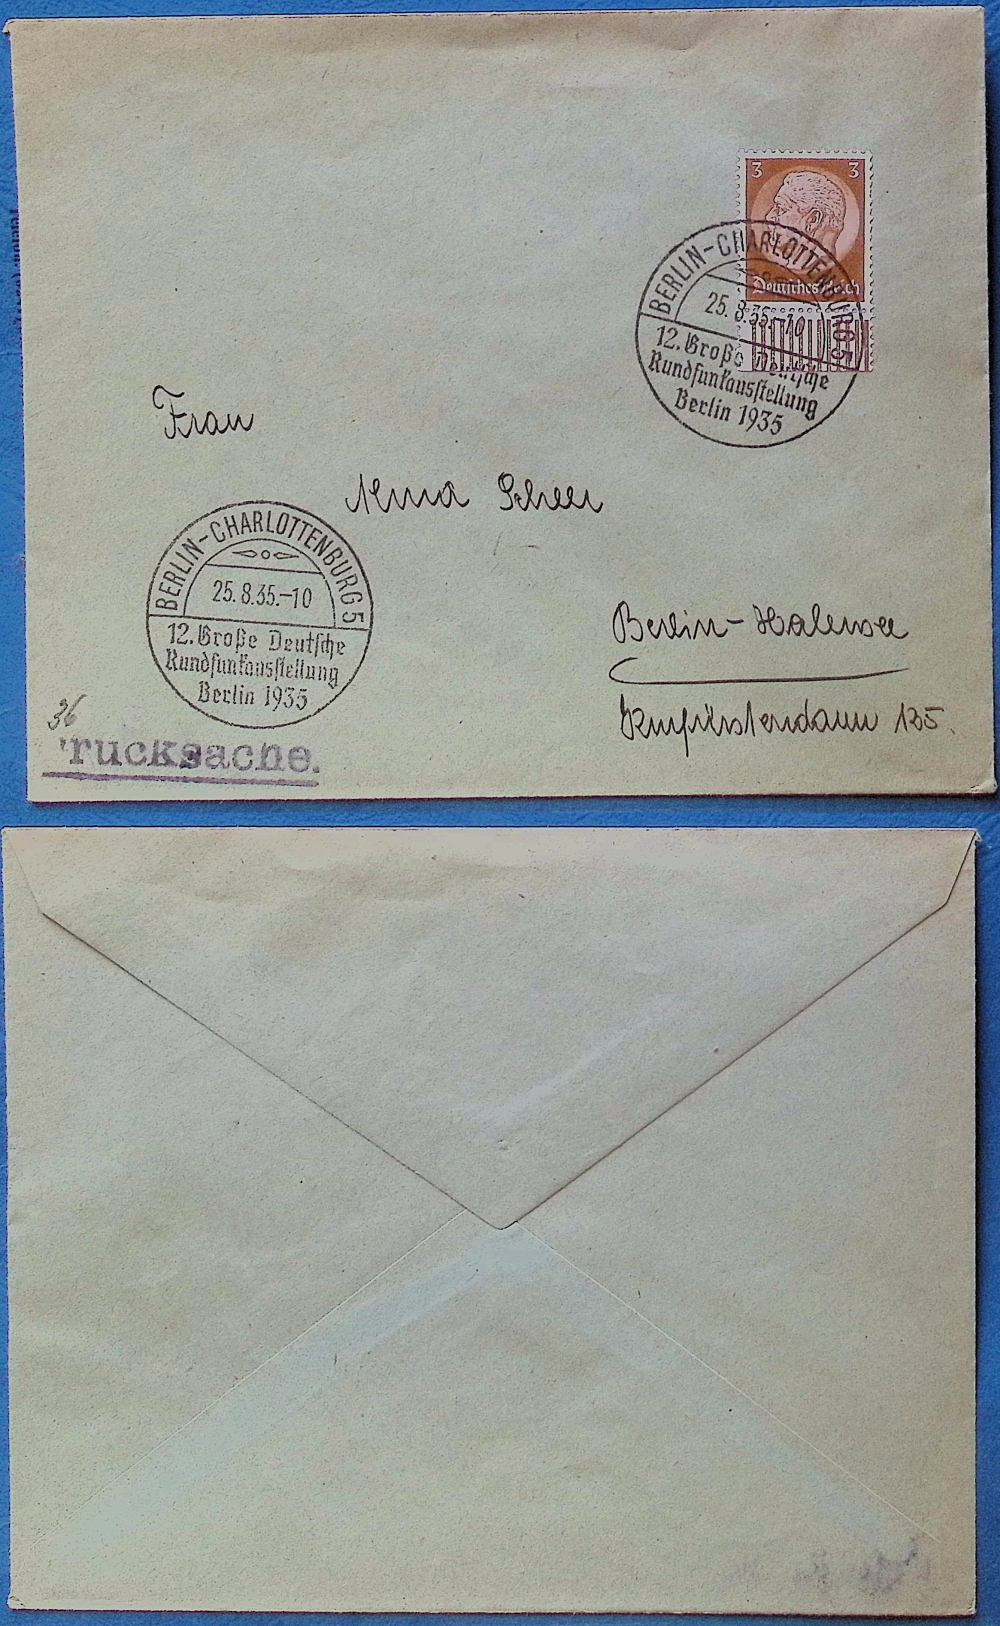 3 3
Deutsches Reich
BERLIN-CHARLOTTENBURG 5
25.8.35.-10
12. Große Deutsche
Rundfunkausstellung
Berlin 1935
Frau
Scheer
BERLIN-CHARLOTTENBURG 5
25.8.35.-10
12. Große Deutsche
Rundfunkausstellung
Berlin 1935
Berlin-Halensee
Kurfürstendamm 135.
36
rucksache.